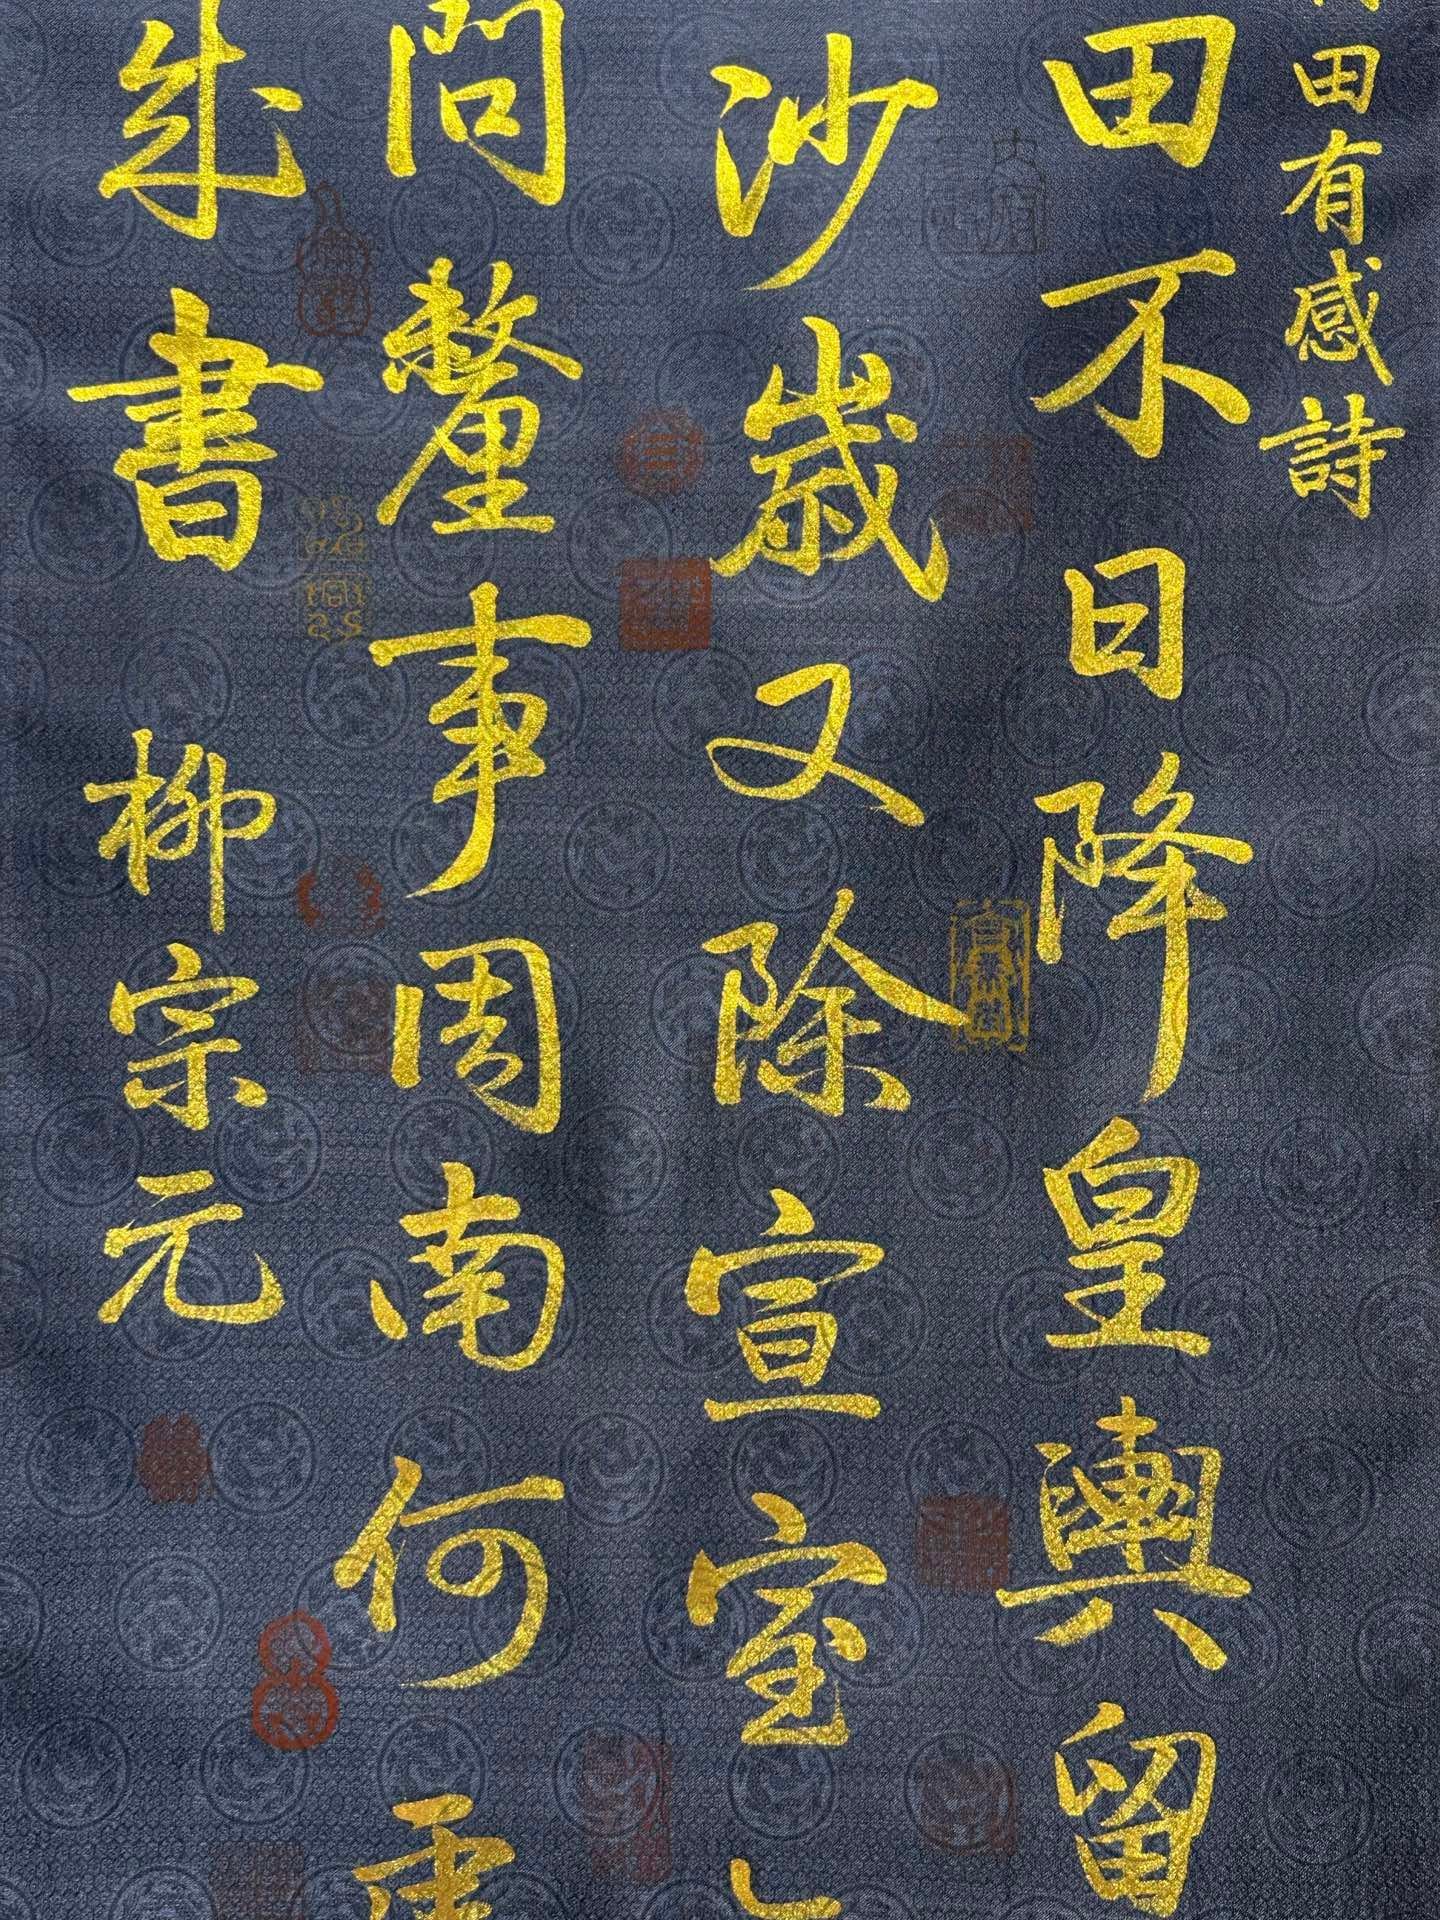 田有感詩
田不日降皇輿留
沙歲又除宣室
問釐事周南何
成書 柳宗元